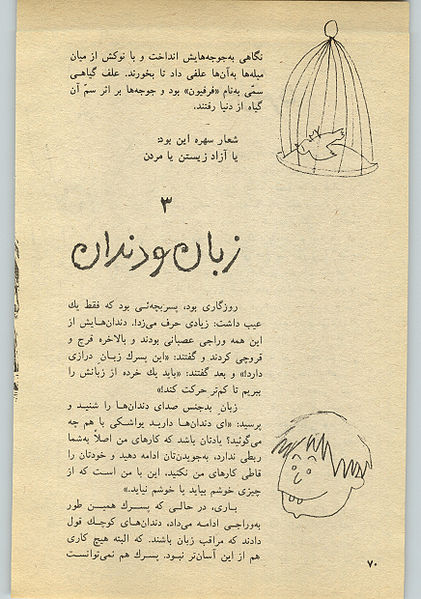 نگاهی به‌جوجه‌هایش انداخت و با نوکش از میان
میله‌ها به‌آن‌ها علفی داد تا بخورند. علف گیاهـی
سمّی به‌نام «فرفیون» بود و جوجه‌ها بر اثر سمّ آن
گیاه از دنیا رفتند.
شعار سهره این بود:
یا آزاد زیستن یا مردن
۳
زبان و دندان
روزگاری بود، پسربچه‌ئی بود که فقط یك
عیب داشت: زیادی حرف می‌زد!. دندان‌هـایش از
این همه وراجی عصبانی بودند و بالاخره قرچ و
قروچی کردند و گفتند: «این پسرك زبـان درازی
دارد!» و بعد گفتند: «باید یك خرده از زبانش را
ببریم تا کم‌تر حرکت کند!»
زبان بدجنس صدای دندان‌هـا را شنیـد و
پرسید: «ای دندان‌ها دارید یواشـکی با هم چه
می‌گوئید؟ یادتان باشد که کارهای من اصلاً به‌شما
ربطی ندارد، به‌جویدن‌تان ادامه دهید و خودتان را
قاطی کارهای من نکنید. این با من است که از
چیزی خوشم بیاید یا خوشم نیاید.»
بـاری، در حـالی که پسـرك همیـن طور
به‌وراجی ادامـه می‌داد، دندان‌های کوچك قول
دادند که مراقب زبان باشند. که البته هیچ کاری
هم از این آسان‌تر نبـود. پسرك هم نمی‌توانست
۷۰